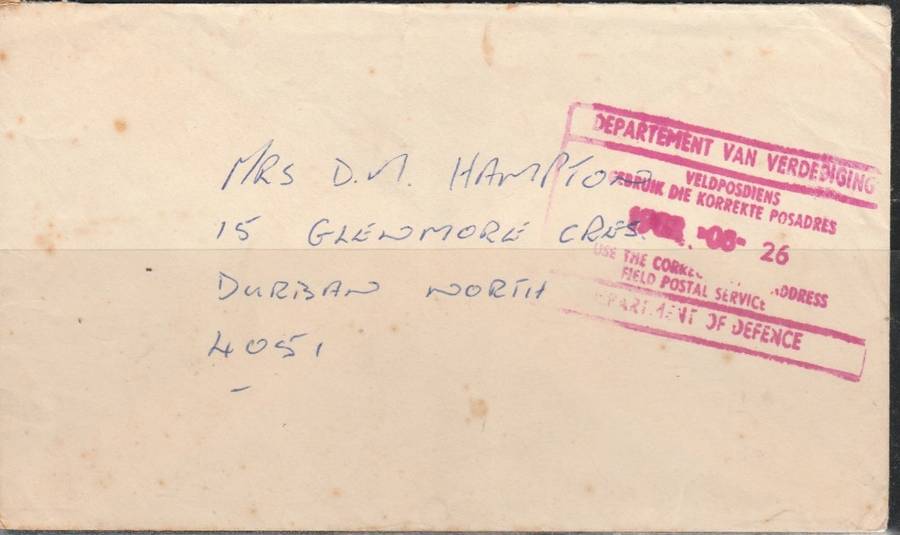 MRS D.M. HAMPTON
15 GLENMORE CRES.
DURBAN NORTH
4051
DEPARTEMENT VAN VERDEDIGING
VELDPOSDIENS
GEBRUIK DIE KORREKTE POSADRES
-08- 26
USE THE ADDRESS
FIELD POSTAL SERVICE
DEPARTMENT OF DEFENCE